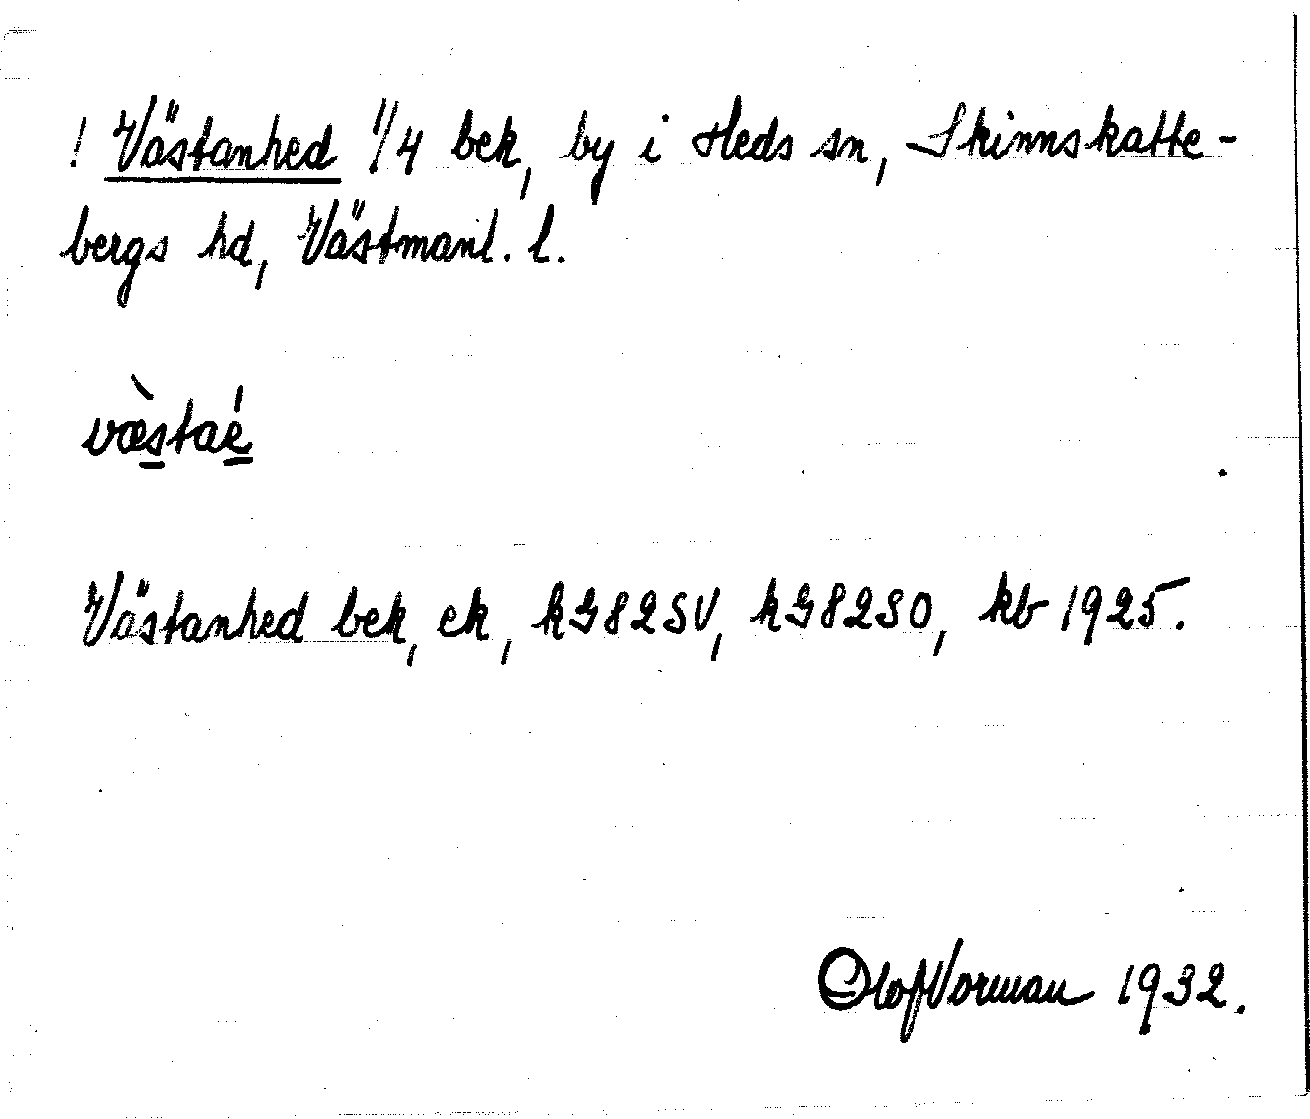 ! Västanhed 1/4 bek, by i Heds sn, Skinnskatte-
bergs hd, Västmanl. l.
væ̀staé
Västanhed bek, ek, kG82SV, kG82SO, kb 1925.
Olof Vorman 1932.